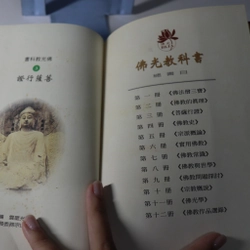 佛光教科書
總 書 目
第 一 冊 《佛法僧三寶》
第 二 冊 《佛教的真理》
第 三 冊 《菩薩行證》
第 四 冊 《佛教史》
第 五 冊 《宗派概論》
第 六 冊 《實用佛教》
第 七 冊 《佛教常識》
第 八 冊 《佛教與世學》
第 九 冊 《佛教問題探討》
第 十 冊 《宗教概說》
第十一冊 《佛光學》
第十二冊 《佛教作品選錄》
佛光教科書
3
菩薩行證